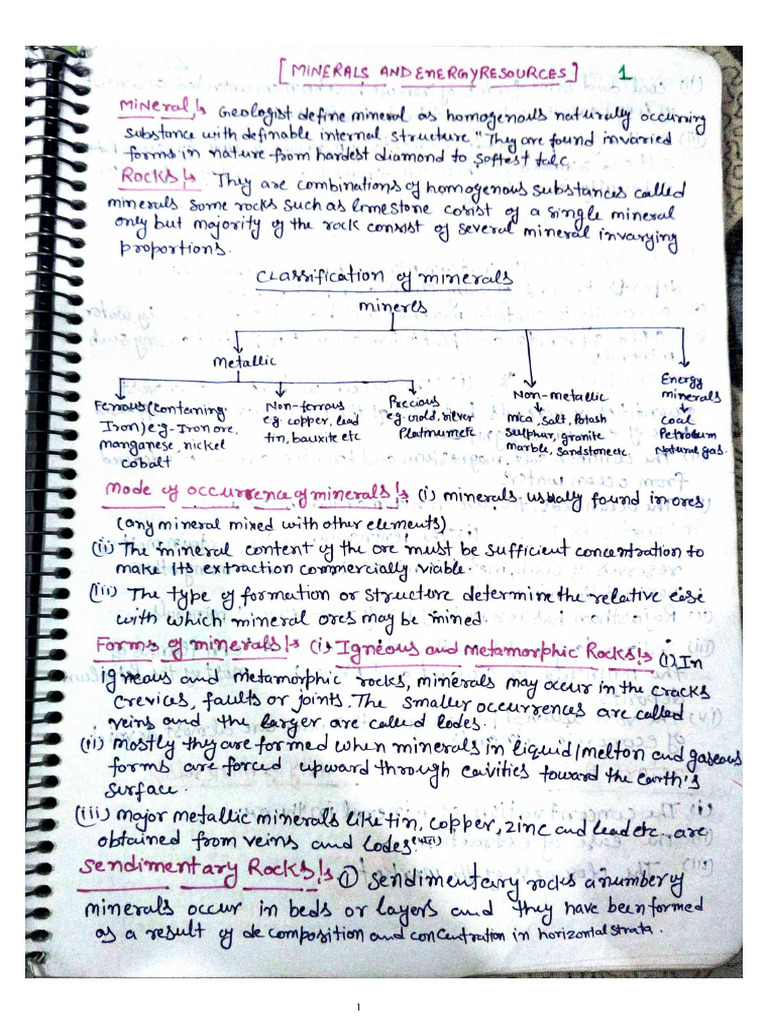 [MINERALS AND ENERGY RESOURCES] 1
Mineral:- Geologist define mineral as homogenous naturally occurring
substance with definable internal structure" They are found invaried
forms in nature from hardest diamond to softest talc
Rocks:- They are combinations of homogenous substances called
minerals some rocks such as limestone cosist of a single mineral
only but majority of the rock consist of several mineral invarying
proportions.
CLassification of minerals
mineres
metallic
Non-metallic
Energy
minerals
Ferrous (contening
Iron) e.g- Iron ore,
manganese, nickel
cobalt
Non-ferrous
e.g. copper, lead
tin, bauxite etc
Precious
e.g. Gold, silver
Platinum etc
mica, salt, Potash
sulphur, granite
marble, sandstone etc.
Coal
Petroleum
Natural gas.
Mode of occurrence of minerals:- (i) minerals usually found in ores
(any mineral mixed with other elements)
(ii) The mineral content of the ore must be sufficient concentration to
make its extraction commercially viable.
(iii) The type of formation or structure determine the relative ease
with which mineral ores may be mined.
Forms of minerals:- (i) Igneous and Metamorphic Rocks:- (i) In
igneous and metamorphic rocks, minerals may occur in the cracks
crevices, faults or joints. The smaller occurrences are called
veins and the larger are called lodes.
(ii) mostly they are formed when minerals in liquid/molton and gaseous
forms are forced upward through cavities toward the earth's
surface.
(iii) major metallic minerals like tin, copper, zinc and lead etc. are
obtained from veins and lodes.
Sendimentary Rocks:- ① Sendimentary rocks a number of
minerals occur in beds or layers and they have been formed
as a result of de composition and concentration in horizontal strata.
1